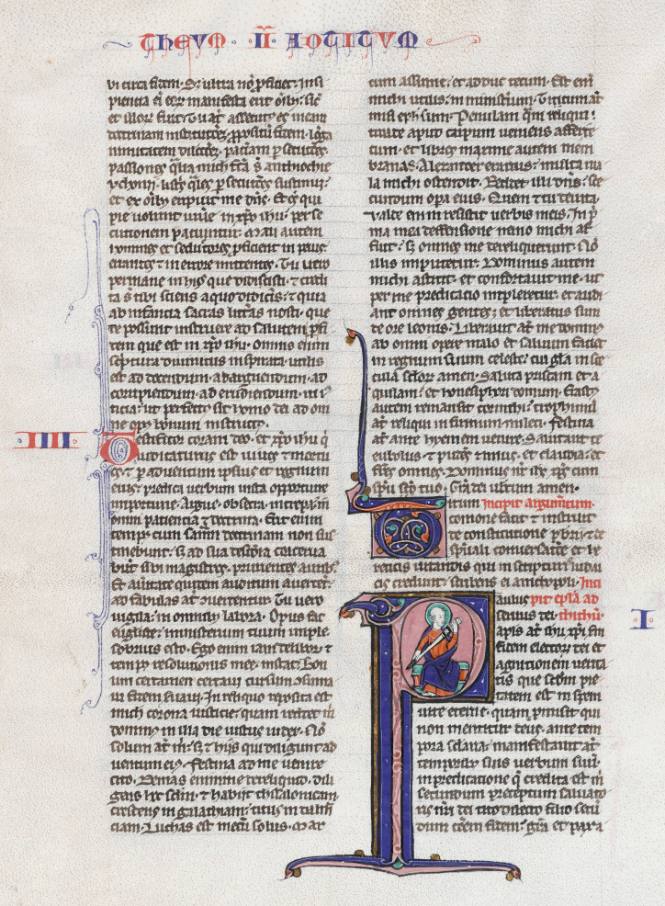 THEVM · II · AD TITVM
ut circa fidem. Sed ultra nõ proficiet. Insi
pientia eĩ eoꝝ manifesta erit oĩbꝫ: sic̃
et illoꝝ fuit. Tu aũt assecutus es meam
doctrinam institucõꝫ, ꝓpositũ, fidem, lõga
nimitatem, dilectõꝫ, pacĩam, ꝑsecucõꝫ,
passiones. q̃lia mich fc̃a s̃ antiochie
yconii, listris: q̃les ꝑsecucões sustinui:
et ex oĩbꝫ eripuit me dñs. Et oẽs qui
pie uolunt uiuere in xp̃o ihũ: perse
cutionem pacientur. Mali autem
homines et seductores ꝓficient in peius:
errantes ⁊ in errorẽ mittentes. Tu uero
permane in hiis que didicisti: ⁊ credi
ta s̃ tibi sciens a quo didicis̃: ⁊ quia
ab infancia sacras litt̃as nosti, que
te possunt instruere ad salutem ꝑ fi
dem que est in xp̃o ihũ. Omnis enim
sc̃ptura diuinitus inspirata utilis
est ad docendum, ad arguendum, ad
corripiendum, ad erudiendum in iu
sticia: ut perfect̃ sit homo dei ad om
ne opꝰ bonum instructꝰ.
IIII
Testificor coram deo, et xp̃o ihũ q̃
iudicaturus est uiuos ⁊ mortu
os: ⁊ ꝑ aduentum ipsius et regnum
eius: predica uerbum insta oportune
importune. Argue, obsecra, increpa: in
omni pacientia ⁊ doctrina. Erit enim
tempꝰ cum sanã doctrinam non sus
tinebunt: sꝫ ad sua desideria coaceruabũt
sibi magistros, prurientes auribꝫ.
Et a ueritate quidem auditum auertẽt:
ad fabulas aũt ɔuertentur. Tu uero
uigila: in omnibꝫ labora. Opus fac
eug̃liste: ministerium tuum imple
sobrius esto. Ego enim iam delibor: ⁊
tempꝰ resolutionis mee instat. Bon̄
um certamen certaui: cursum ɔsũma
ui fidem seruaui. In reliquo reposita est
mich corona iusticie: quam reddet m̃
dominꝰ in illa die iustus iudex. Nõ
solum aũt m̃: sꝫ ⁊ hiis qui diligunt ad
uentum eiꝰ. Festina ad me uenire
cito. Demas enim me dereliquid, dili
gens hoc sc̃lm: ⁊ habiit thessalonicam
crescens in galathiam: titus in dalma
ciam. Luchas est mecũ solus. Mar
cum assume: et adduc tecum. Est enĩ
michi utilis: in ministerium. Titicum aũt
misi ephesum. Penulam q̃m reliqui t̃
tiade apud carpum ueniens affer te
cum. et libros maxime autem mem
branas. Alexander erarius: multa ma
la michi ostendit. Reddet illi dñs: se
cundum opera eius. Quem ⁊ tu deuita.
Valde enim restitit uerbis meis. In p̃
ma mea defensione nemo michi af
fuit: sꝫ omnes me dereliquerunt. Nõ
illis imputetur. Dominus autem
michi astitit: et confortauit me. ut
per me predicacio impleretur. et audi
ant omnes gentes: et liberatus sum
de ore leonis. Liberauit aũt me dominꝰ
ab omni opere malo et saluum faciet
in regnum suum celeste: cui gl̃a in se
cula sc̃loꝝ amen. Saluta priscam et a
quilam: et honesiphori domum. Erastꝰ
autem remansit corinthi: trophimũ
aũt reliqui infirmum mileti. Festina
ãt ante hyemem uenire. Salutant te
eubulus: ⁊ pudens: linus, et claudia: et
fr̃es omnes. Dominus nr̃ ihc xp̃c cum
spũ tuo. Gr̃a dei uestrum amen.
Titum Incipit argumentum.
commonefacit ⁊ instruit
de constitucione pr̃bit̃ii ⁊ de
sp̃uali conuersacõe et he
reticis uitandis qui in scripturis iudai
cis credunt. scribens ei a nicopoli. Inci
Paulus pit epl̃a ad
seruus dei. thithũ.
apl̃s aũt ihũ xp̃i scdm
fidem electoꝝ dei et
agnitionem ueritatis
que scdm pie
tatem est in spem
I
uite eterne. quam promisit qui
non mentitur deus. ante tem
pora sclaria: manifestauit aũt
temporibꝫ suis uerbum suũ
in predicatione q̃ credita est m̃
secundum preceptum saluato
ris nr̃i dei tito dilecto filio secũ
dum cõem fidem: gr̃a et pax a